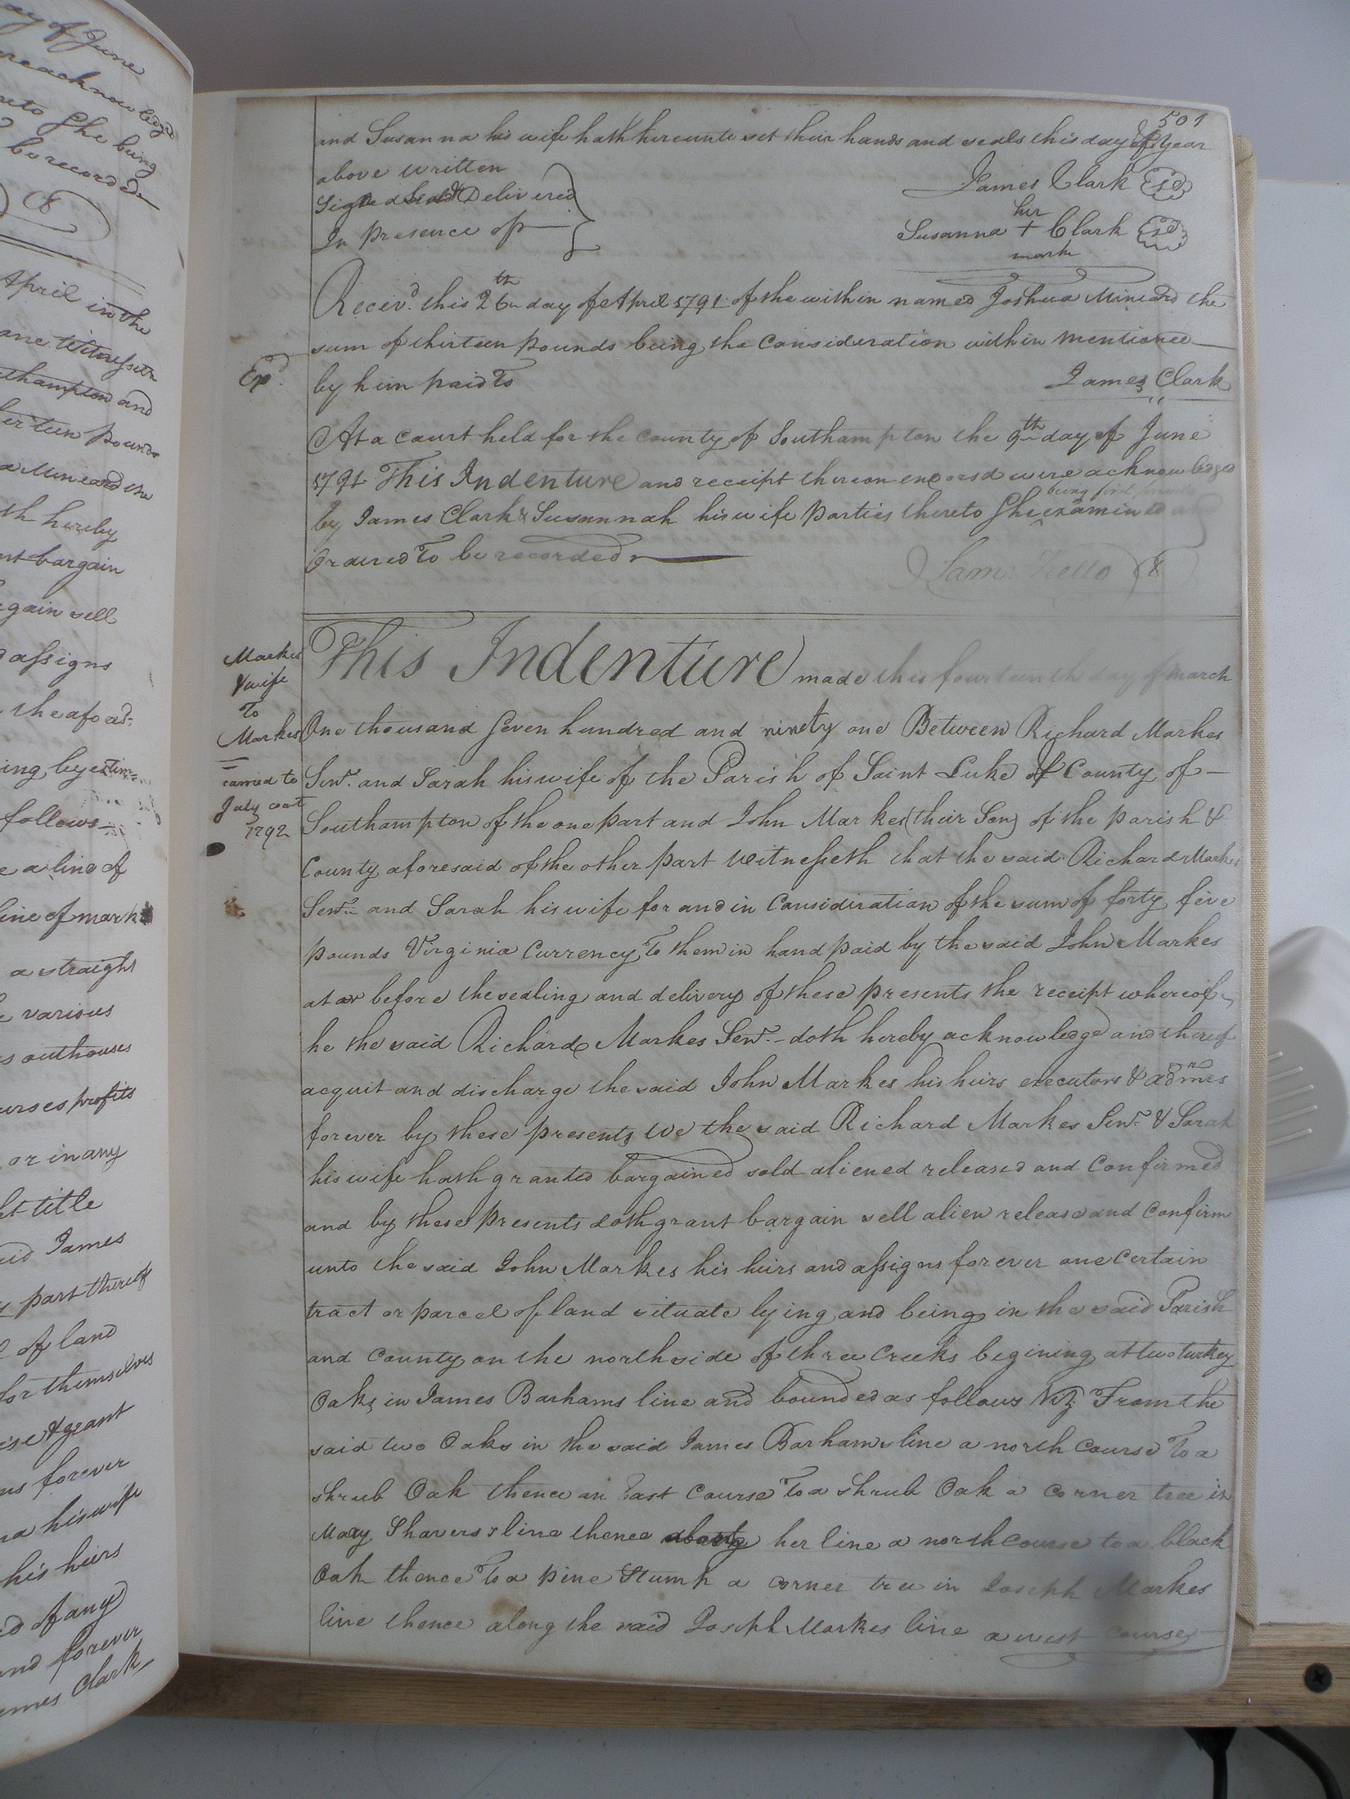 ay of June
reacknowledgd
reto She being
be recorded
April in the
ane Witnesseth
thampton and
irteen pounds
a Mineard the
th hereby
nt bargain
gain sell
d assigns
the afores:
ing, by estim:
follows
e a line of
line of mark
a straight
various
s outhouses
urses profits
or in any
ht title
aid James
part thereof
of land
for themselves
ise & grant
ns forever
na his wife
his heirs
ed of any
and forever
ames Clark
501
and Susanna his wife hath hereunto set their hands and seals this day & year
above written
Signed Seald & Delivered
In presence of
James Clark
her
Susanna + Clark
mark
Receivd. this 26th day of April 1791 of the within named Joshua Mineard the
sum of thirteen pounds being the Consideration within mentioned
Exd.
by him paid To
James Clark
At a Court held for the County of Southampton the 9th day of June
1791 This Indenture and receipt thereon endorsd were acknowledged
being first privately
by James Clark & Susannah his wife Parties thereto She examined and
Ordered To be recorded
Sam: Kello C
Markes
& wife
To
Markes
carried to
July cort
1792
This Indenture made this fourteenth day of March
One thousand Seven hundred and ninety one Between Richard Markes
Senr. and Sarah his wife of the Parish of Saint Luke & County of
Southampton of the one part and John Markes (their Son) of the parish &
County aforesaid of the other part Witnesseth that the said Richard Markes
Senr. and Sarah his wife for and in Consideration of the sum of forty five
pounds Virginia Currency To them in hand paid by the said John Markes
at or before the sealing and delivery of these presents the receipt whereof
he the said Richard Markes Senr. doth hereby acknowledge and thereof
acquit and discharge the said John Markes his heirs executors & admrs
forever by these presents We the said Richard Markes Senr. & Sarah
his wife hath granted bargained sold aliened released and Confirmed
and by these presents doth grant bargain sell alien release and Confirm
unto the said John Markes his heirs and assigns forever one Certain
tract or parcel of land situate lying and being in the said Parish
and County on the north side of three Creeks begining at two turkey
Oaks in James Barhams line and bounded as follows Viz. From the
said two Oaks in the said James Barhams line a north Course To a
shrub Oak thence an East Course To a shrub Oak a corner tree in
Mary Thavers line thence her line a north course to a black
Oak thence To a pine Stump a corner tree in Joseph Markes
line thence along the said Joseph Markes line a west course